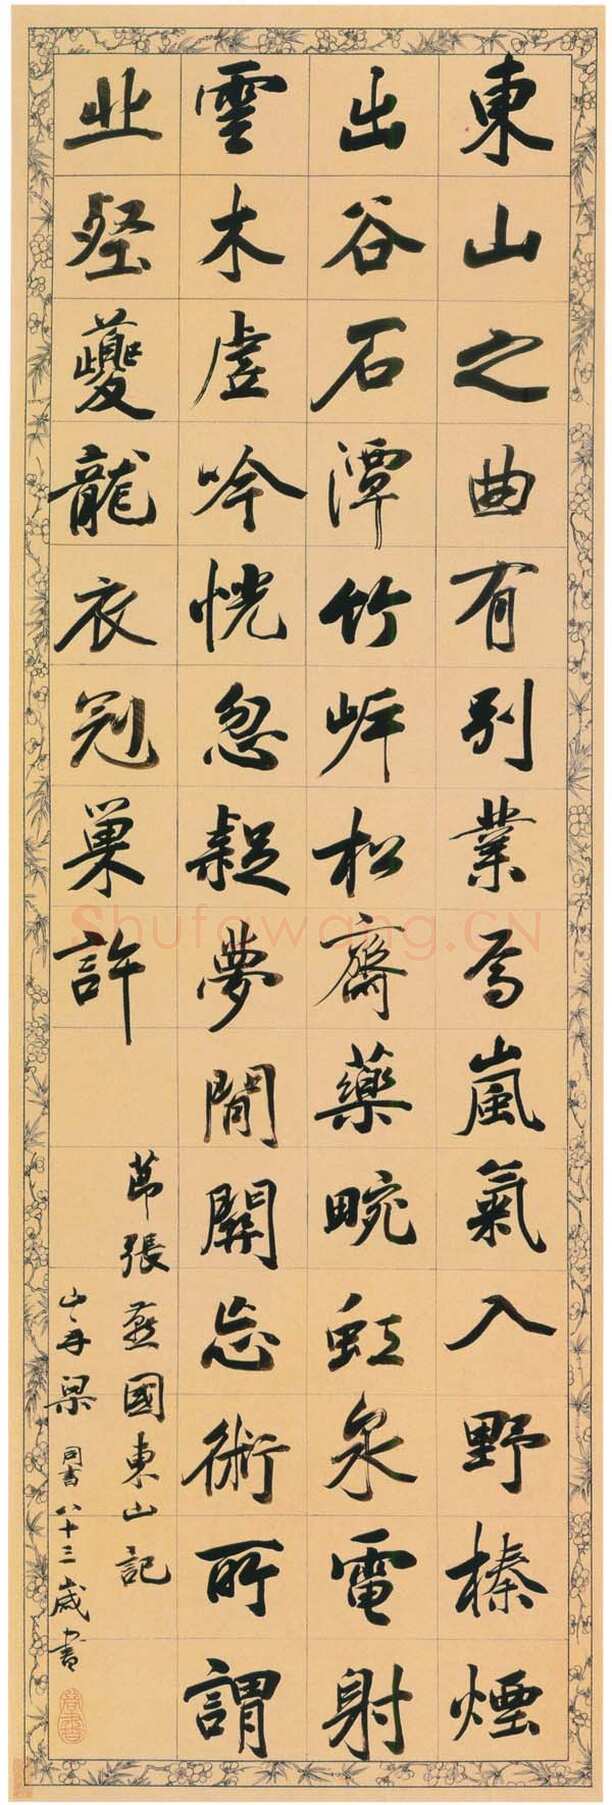 東山之曲有別業焉嵐氣入野榛煙
出谷石潭竹岸松齋藥畹虹泉電射
雲木虛吟恍忽疑夢閒關忘術所謂
丘壑夔龍衣冠巢許
節張燕國東山記
山舟梁同書八十三歲書
Shufawang.CN